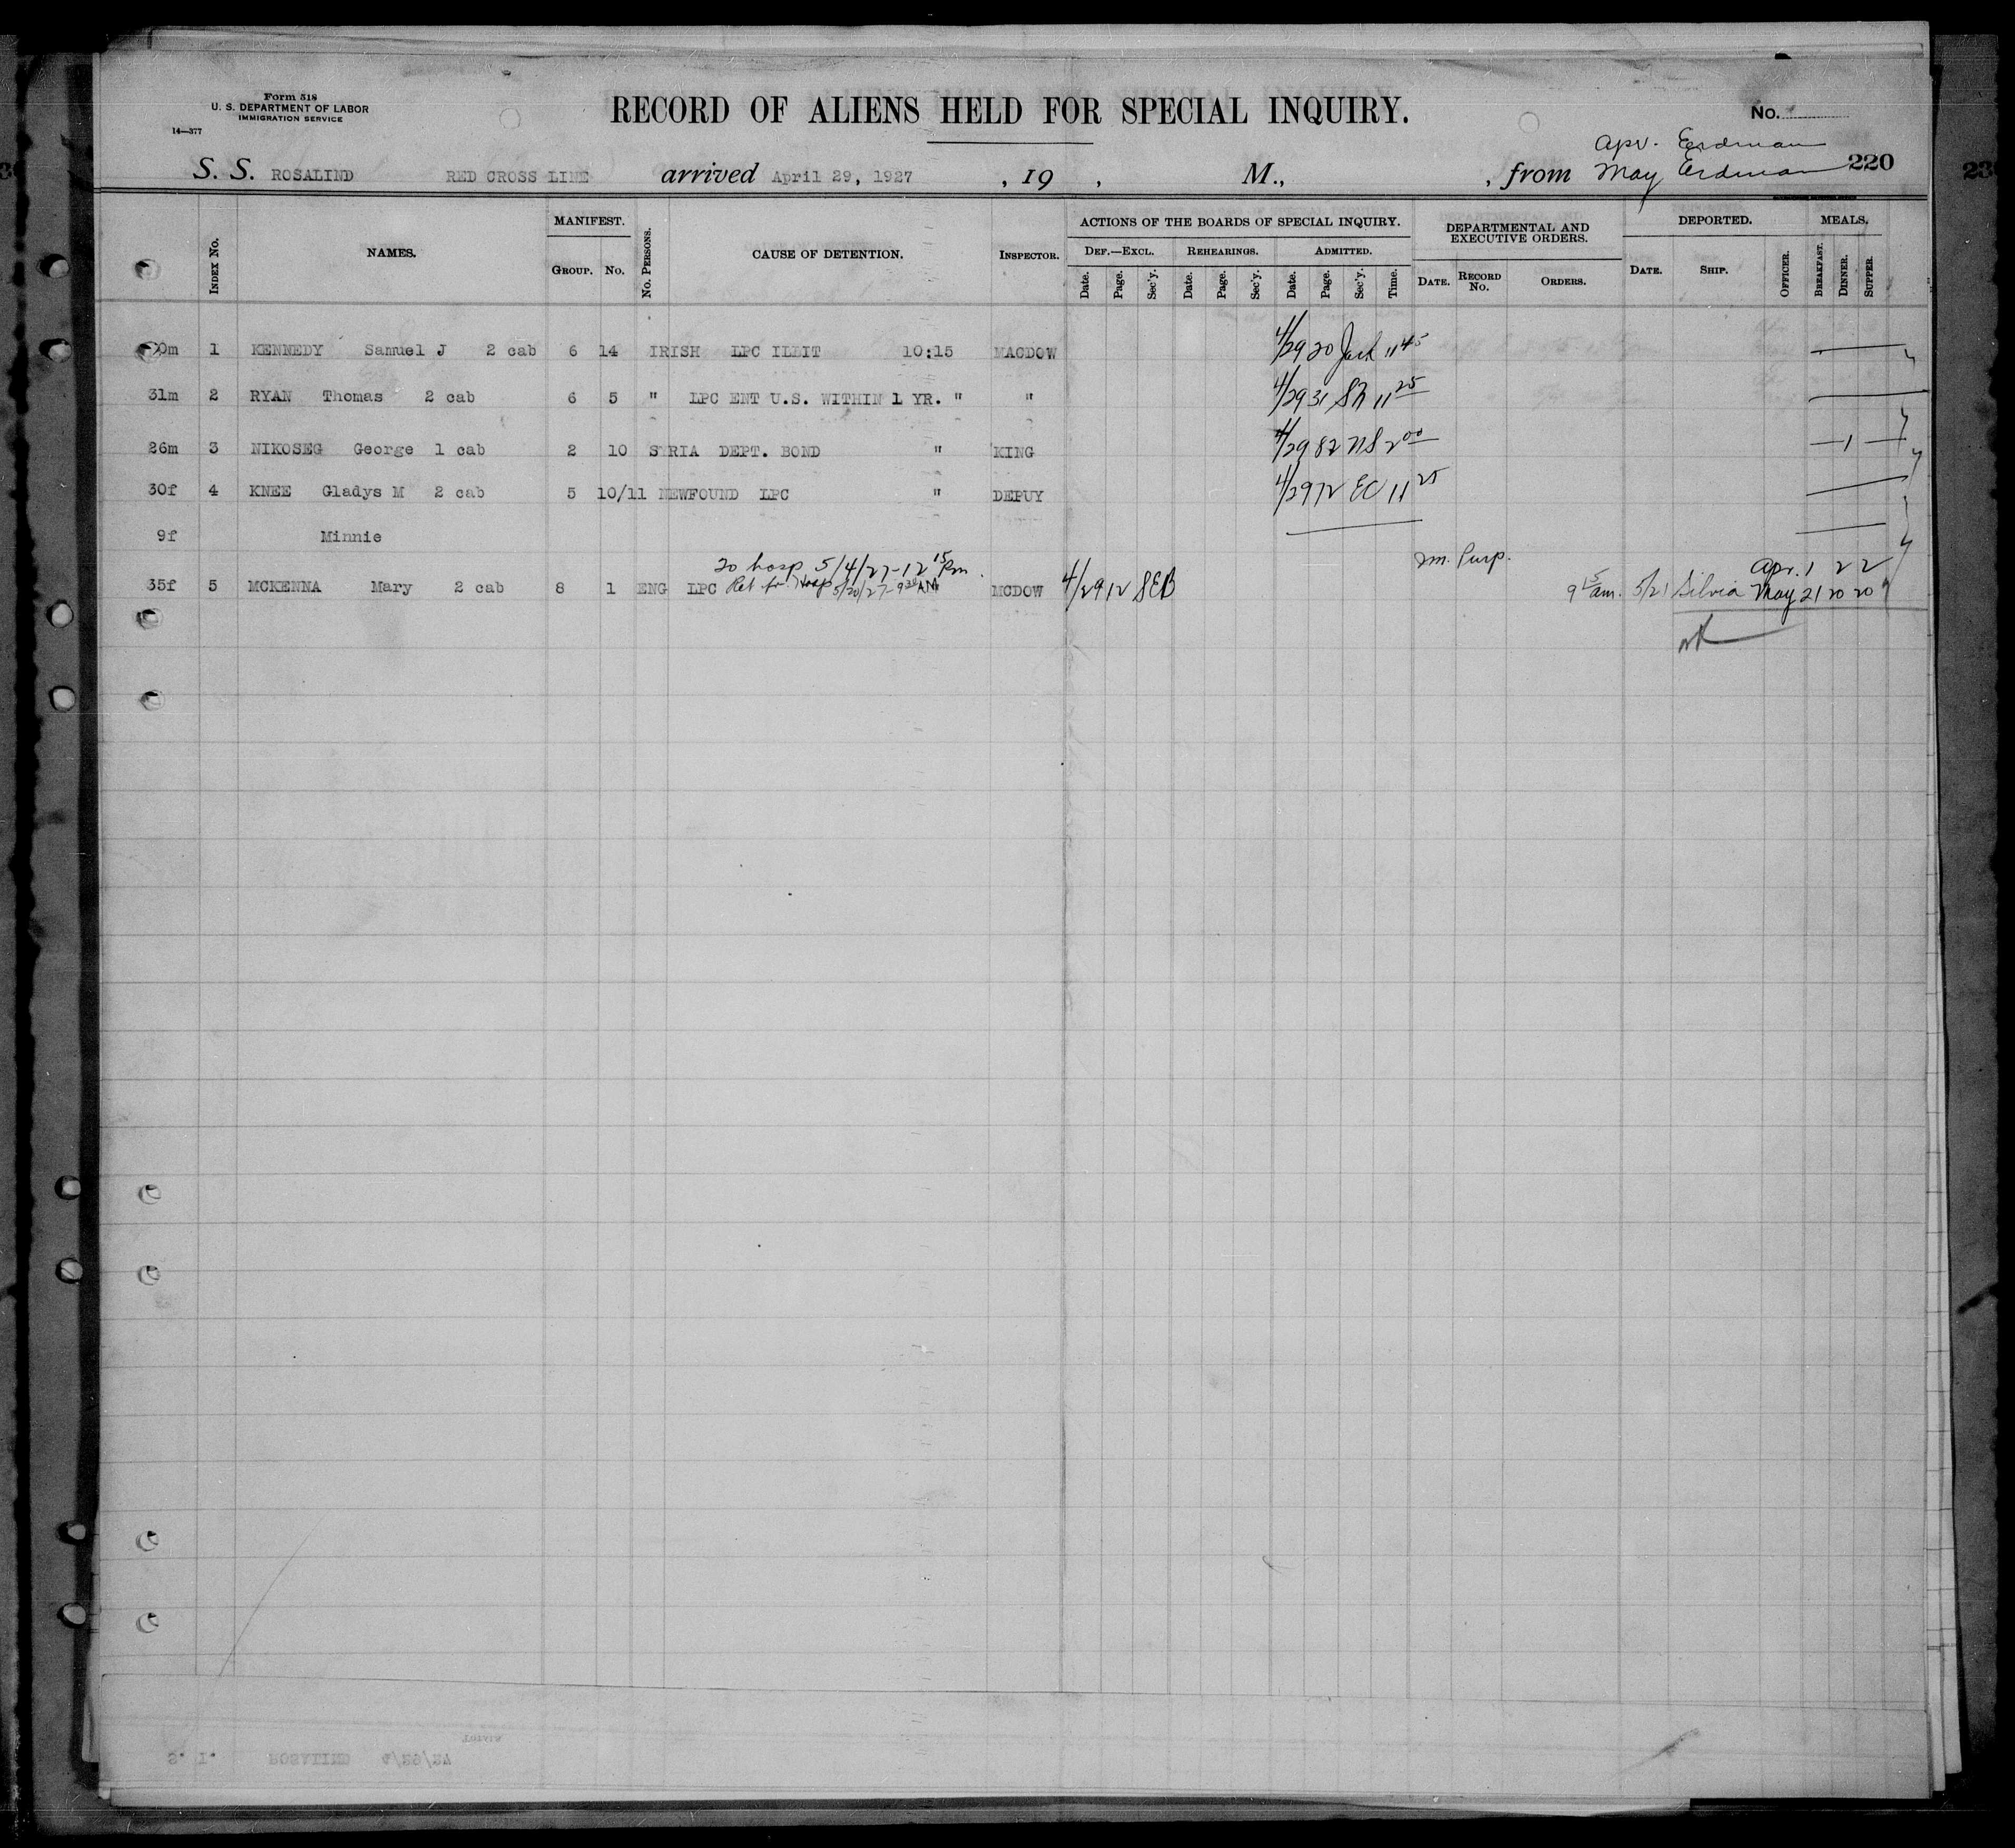 Form 518
U. S. DEPARTMENT OF LABOR
IMMIGRATION SERVICE
14—377
RECORD OF ALIENS HELD FOR SPECIAL INQUIRY.
No.
Apr. Erdman
S. S. ROSALIND RED CROSS LINE arrived April 29, 1927 , 19 , M., , from May Erdman 220
Index No. NAMES. MANIFEST. Group. No. No. Persons. CAUSE OF DETENTION. Inspector. ACTIONS OF THE BOARDS OF SPECIAL INQUIRY. DEPARTMENTAL AND EXECUTIVE ORDERS. DEPORTED. MEALS.
Def.—Excl. Rehearings. Admitted.
Date. Page. Sec'y. Date. Page. Sec'y. Date. Page. Sec'y. Time. Date. Record No. Orders. Date. Ship. Officer. Breakfast. Dinner. Supper.
0m 1 KENNEDY Samuel J 2 cab 6 14 IRISH LPC ILLIT 10:15 MACDOW 4/29 20 11 45
31m 2 RYAN Thomas 2 cab 6 5 " LPC ENT U.S. WITHIN 1 YR. " " 4/29 31 11 25
26m 3 NIKOSEG George 1 cab 2 10 SYRIA DEPT. BOND " KING 4/29 82 NS 2 00 — 1 —
30f 4 KNEE Gladys M 2 cab 5 10/11 NEWFOUND LPC " DEPUY 4/29 12 EC 11 25
9f Minnie
To hosp 5/4/27-12 15 Pm. Apr. 1 2 2
35f 5 MCKENNA Mary 2 cab 8 1 ENG LPC Ret fr. Hosp 5/20/27-9 30 AM MCDOW 4/29 12 SEB 9 15 am. 5/21 Silvia May 21 20 20
S. I. ROSALIND